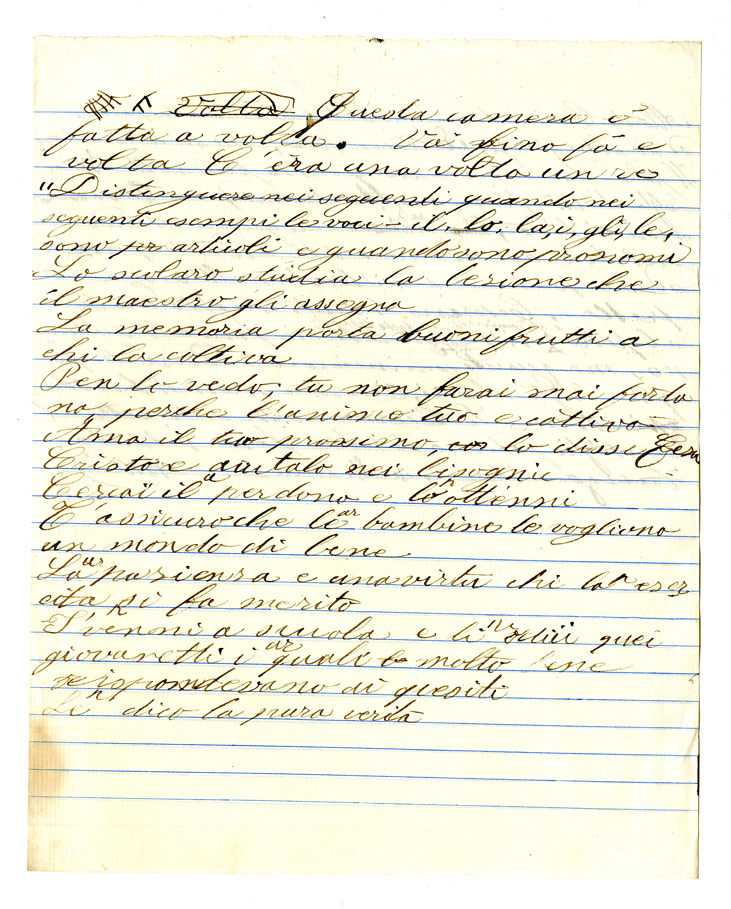 Volta Questa camera è
fatta a volta. Va fino là e
volta C'éra una volta un re
"Distinguere nei seguenti quando nei
seguenti esempi le voci - il, lo, la, i, gli, le,
sono per articoli e quando sono pronomi
Lo scolaro studia la lezione che
il maestro gli assegna
La memoria porta buoni frutti a
chi la coltiva
Ben lo vedo, tu non farai mai fortu
na, perche l'animo tuo e cattivo
Ama il tuo prossimo, lo disse Gesu
Cristo e aiutalo nei bisogni
Cercai il a perdono e lo n ottenni
T'assicuro che le ar bambine le vogliono
un mondo di bene
La ar pazienza e una virtu chi la n eser
cita si fa merito
I venni a scuola e li udii quei
giovanetti i ar quali molto bene
rispondevano ai quesiti
Le n dico la pura verità